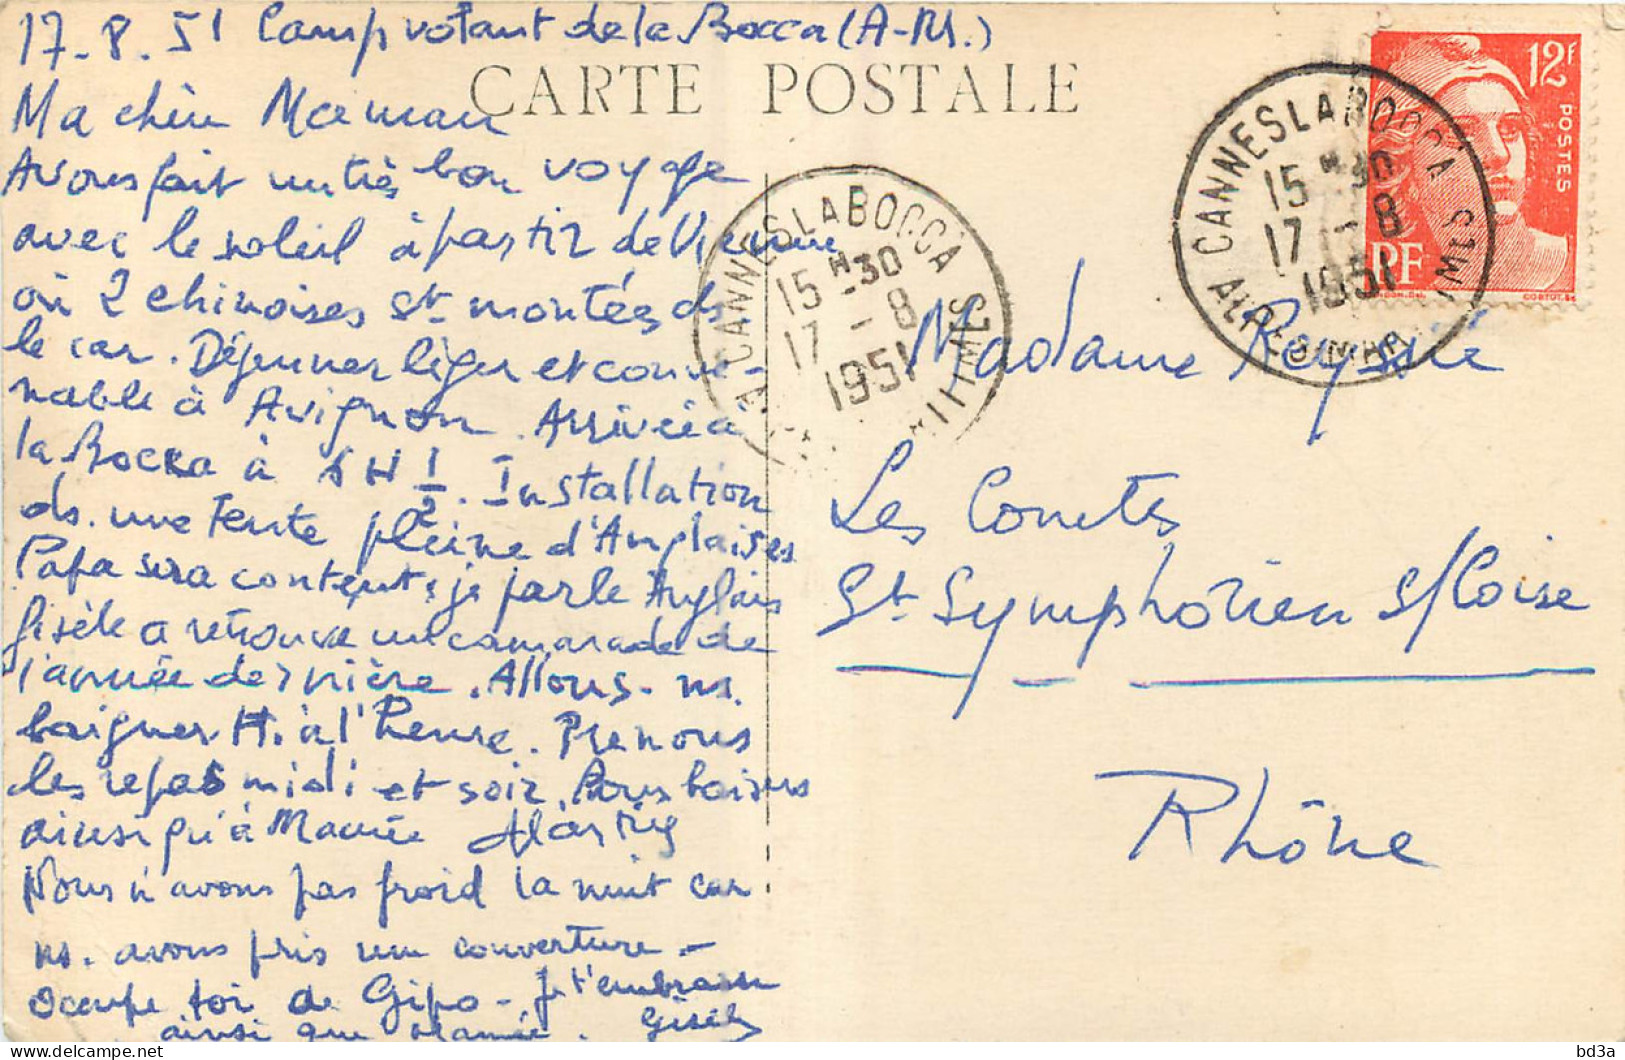 17-8.51 Camp volant de la Bocca (A-M.)
CARTE POSTALE
Ma chère Maman
Avons fait un très bon voyage
avec le soleil à partir de Vienne
où 2 chinoises st montées ds
le car. Déjeuner léger et conve-
nable à Avignon. Arrivée à
la Bocca à 5 H 1/2. Installation
ds. une tente pleine d'Anglaises
Papa sera content, je parle Anglais
Gisèle a retrouvé un camarade de
l'année dernière. Allons-ns.
baigner H. à l'heure. Prenons
les repas midi et soir. Bons baisers
ainsi qu'à Mamée
Nous n'avons pas froid la nuit car
ns. avons pris une couverture-
Occupe toi de Gipo - Je t'embrasse
ainsi que Mamée. Gisèle
CANNES LA BOCCA
15 H 30
17-8
1951
CANNES LA BOCCA
15 H 30
17-8
1951
ALPES MAR
12F
POSTES
RF
Madame Reyssié
Les Comtes
St Symphorien s/Coise
Rhône
bd3a